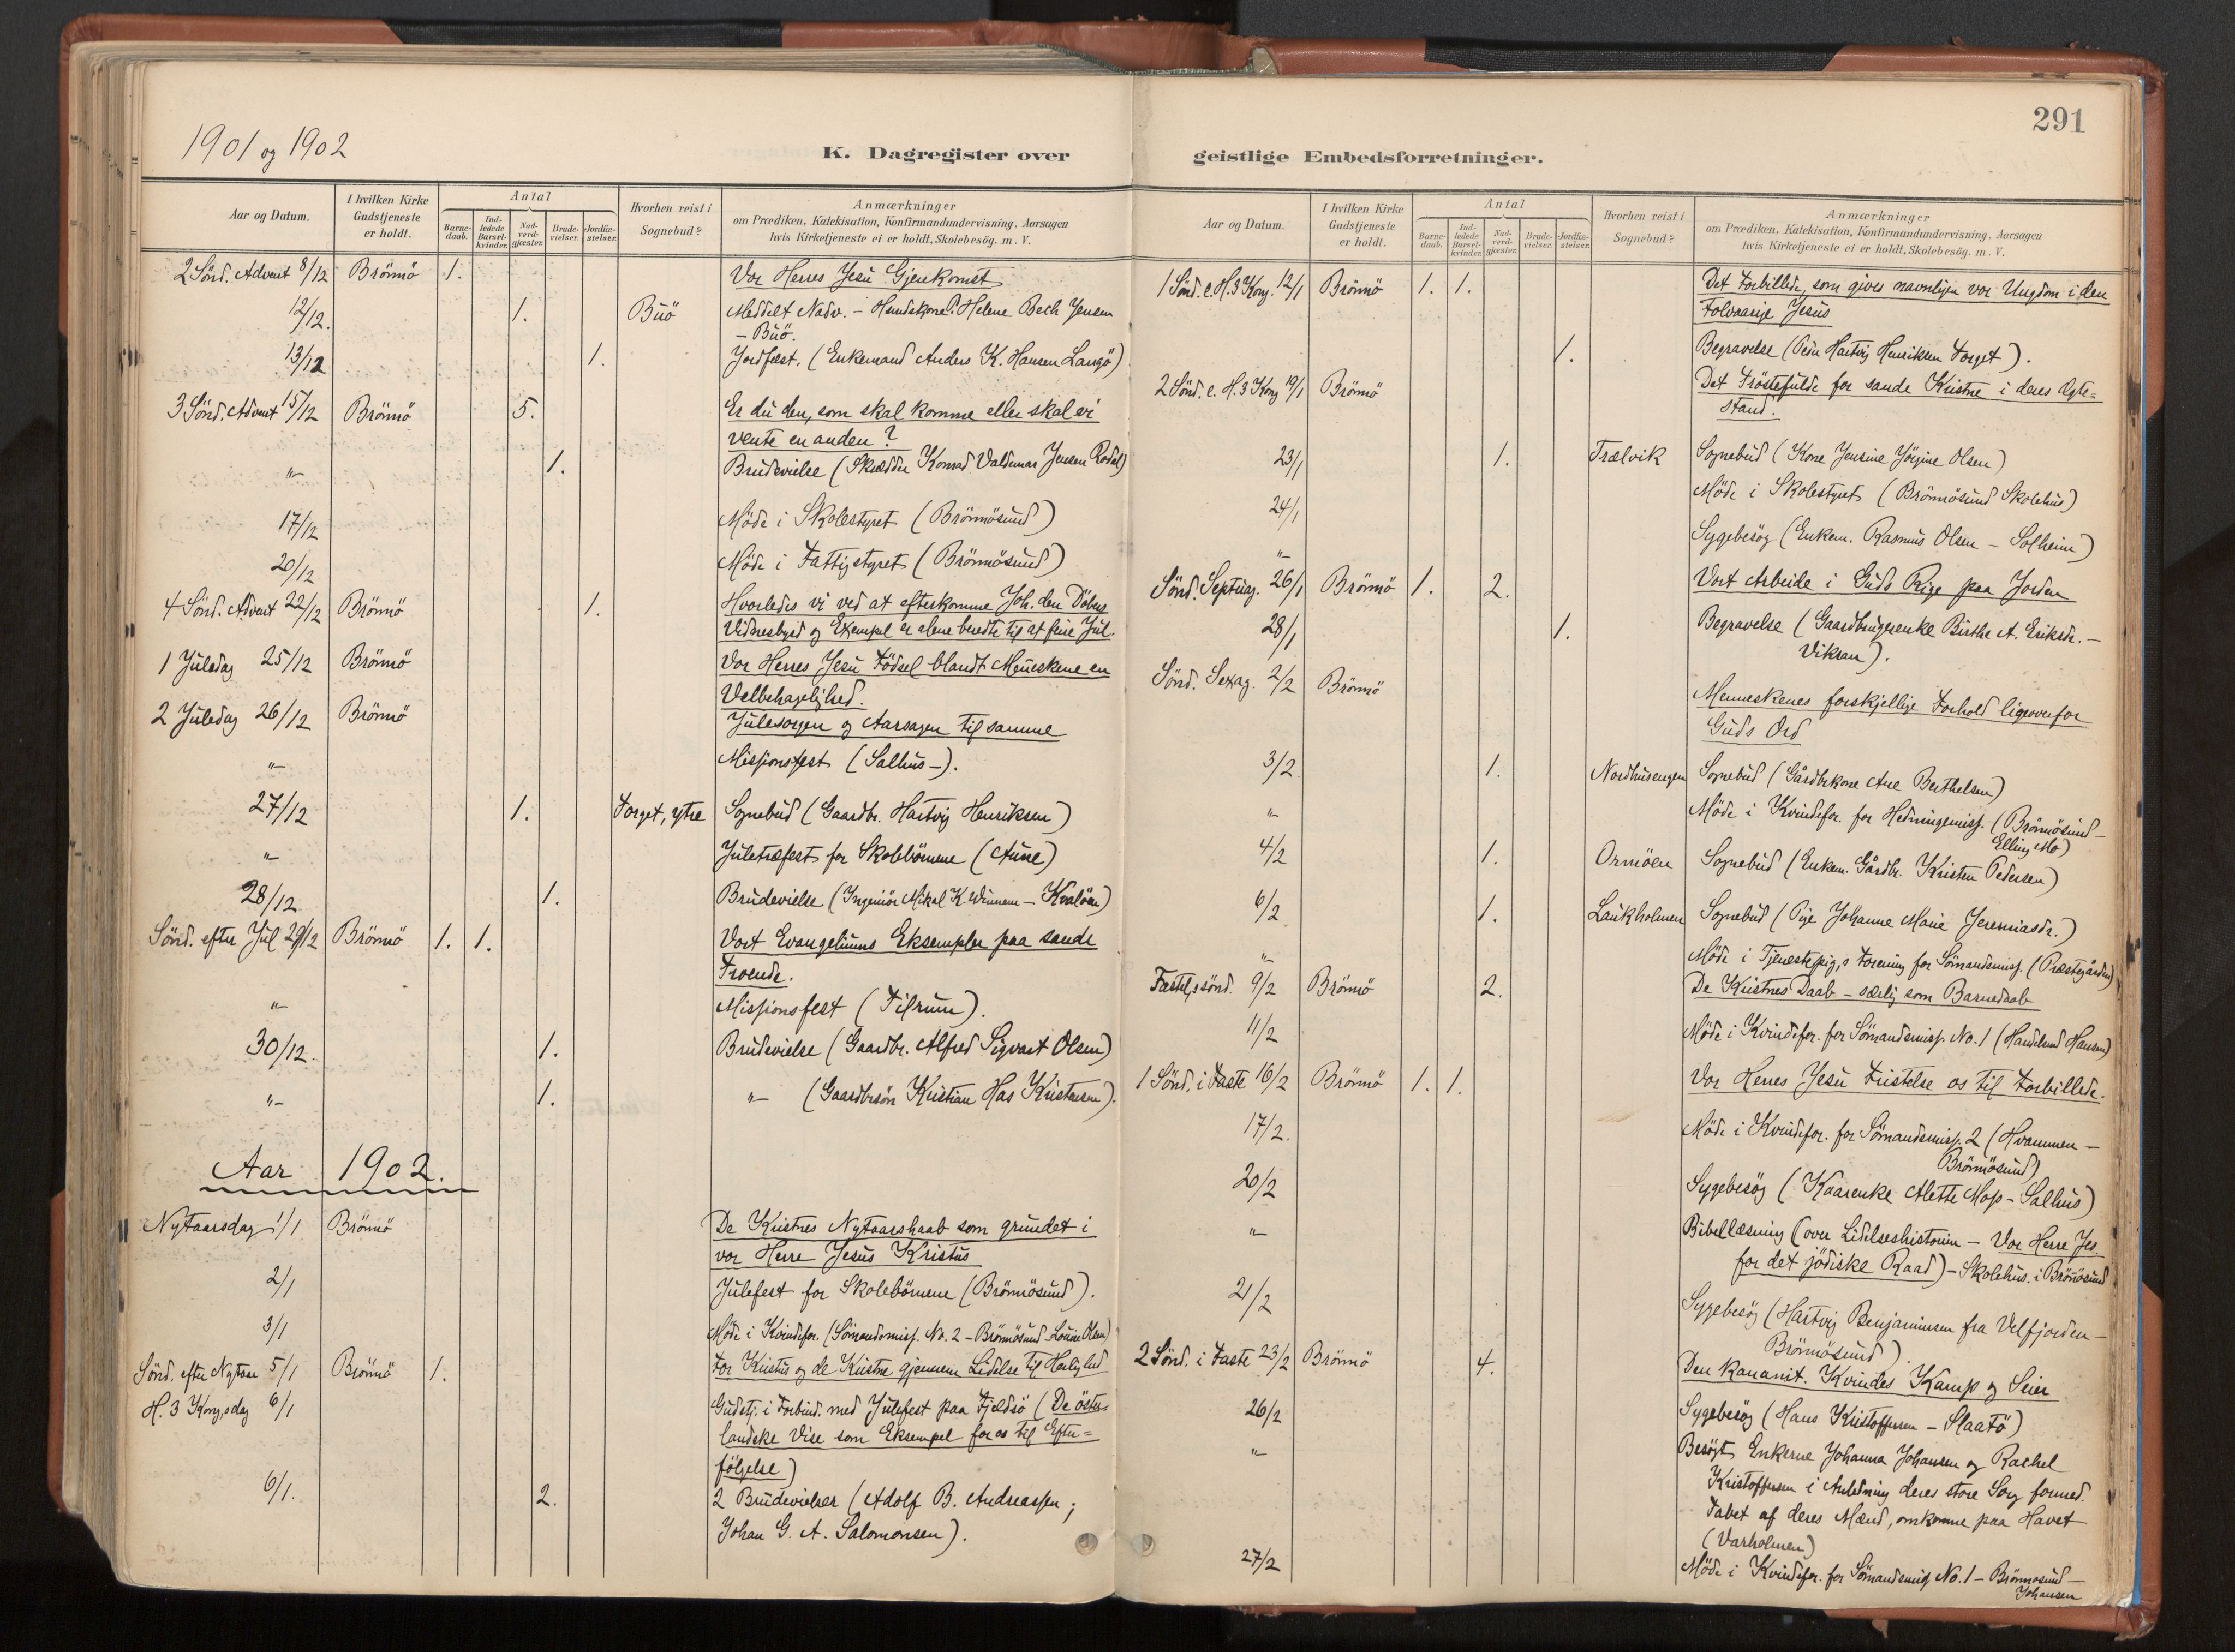 1901 og 1902
K. Dagregister over
Aar og Datum. I hvilken Kirke Gudstjeneste er holdt. Antal Barne-daab. Ind-ledede Barsel-kvinder. Nad-verd-gjæster. Brude-vielser. Jordfæ-stelser. Hvorhen reist i Sognebud? Anmærkninger
om Prædiken, Katekisation, Konfirmandundervisning, Aarsagen
hvis Kirketjeneste ei er holdt, Skolebesög. m. V.
2 Sönd. Advent 8/12 Brönnö 1. Vor Herres Jesu Gjenkomst
12/12. 1. Buö Meddelt Nadv. – Helene Bech Jensen
– Buö.
13/12 1. Jordfæst. (Enkemand Anders K. Hansen Langö)
3 Sönd. Advent 15/12 Brönnö 5. Er du den, som skal komme eller skal vi
vente en anden?
"– 1. Brudevielse (Skrædder Konrad Valdemar Jensen Rodal)
17/12 Möde i Skolestyret (Brönnösund)
20/12 Möde i Fattigstyret (Brönnösund)
4 Sönd. Advent 22/12 Brönnö 1. Hvorledes vi ved at efterkomme Joh. den Döbers
Vidnesbyrd og Exempel er alene beredte til at feire Jul.
1 Juledag 25/12 Brönnö Vor Herres Jesu Födsel blandt Menneskene en
Velbehagelighed.
2 Juledag 26/12 Brönnö Julesorgen og Aarsagen til samme
"– Missionsfest (Salhus –).
27/12 1. Torget, ytre Sognebud (Gaardbr. Hartvig Henriksen)
"– Juletræfest for Skolebörnene (Aune)
28/12 1. Brudevielse (Ingeniör Mikal K. Winnem – Kvalöen)
Sönd. efter Jul 29/12 Brönnö 1. 1. Vort Evangeliums Eksempler paa sande
Troende.
"– Missionsfest (Tilrum).
30/12. 1. Brudevielse (Gaardbr. Alfred Sigvart Olsen)
"– 1. "– (Gaardbrsön Kristian Has Kristensen).
Aar 1902.
Nytaarsdag 1/1 Brönnö De Kristnes Nytaarshaab som grundet i
vor Herre Jesus Kristus
2/1 Julefest for Skolebörnene (Brönnösund).
3/1 Möde i Kvindefor. (Sömandsmiss. No. 2 – Brönnösund – Louise Olsen)
Sönd. efter Nytaar 5/1 Brönnö 1. For Kristus og de Kristne gjennem Lidelse til Herlighed
H. 3 Kongsdag 6/1 Gudstj. i Forbind. med Julefest paa Fjeldsö (De öster-
landske Vise som Eksempel for os til Efter=
fölgelse)
6/1. 2. 2 Brudevielser (Adolf B. Andreassen;
Johan G. A. Salomonsen).
291
geistlige Embedsforretninger.
Aar og Datum. I hvilken Kirke Gudstjeneste er holdt. Antal Barne-daab. Ind-ledede Barsel-kvinder. Nad-verd-gjæster. Brude-vielser. Jordfæ-stelser. Hvorhen reist i Sognebud? Anmærkninger
om Prædiken, Katekisation, Konfirmandundervisning, Aarsagen
hvis Kirketjeneste ei er holdt, Skolebesög. m. V.
1 Sönd. e. H. 3 Kong. 12/1 Brönnö 1. 1. Det Forbillede, som gives navnligen vor Ungdom i den
Tolvaarige Jesus
1. Begravelse (Peder Hartvig Henriksen Torget).
2 Sönd. e. H. 3 Kong 19/1 Brönnö Det Tröstefulde for sande Kristne i deres Ægte=
stand.
23/1 1. Trælvik Sognebud (Kone Jensine Jörgine Olsen)
24/1 Möde i Skolestyret (Brönnösund Skolehus)
"– Sygebesög (Enkem. Rasmus Olsen – Solheim)
Sönd. Septuag. 26/1 Brönnö 1. 2. Vort Arbeide i Guds Rige paa Jorden
28/1 1. Begravelse (Gaardbrugerenke Birthe A. Eriksdr. –
Vikran).
Sönd. Sexag. 2/2 Brönnö Menneskenes forskjellige Forhold ligeoverfor
Guds Ord
3/2 1. Nordhusengen Sognebud (Gårdbrkone Ane Berthelsen)
"– Möde i Kvindefor. for Hedningemiss. (Brönnösund –
Elling Mo)
4/2 1. Ormöen Sognebud (Enkem. Gårdbr. Kristen Pedersen)
6/2 1. Laukholmen Sognebud (Pige Johanne Marie Jeremiasdr.)
"– Möde i Tjenestepig,s Forening for Sömandsmiss. (Præstegården)
Fastel,ssönd. 9/2 Brönnö 2. De Kristnes Daab – særlig som Barnedaab
11/2 Möde i Kvindefor. for Sömandsmiss. No. 1 (Handelsmd Hansen)
1 Sönd. i Faste 16/2 Brönnö 1. 1. Vor Herres Jesu Fristelse os til Forbillede.
17/2. Möde i Kvindefor. for Sömandsmiss. 2 (Hvammen –
Brönnösund)
20/2 Sygebesög (Kaarenke Alette Mop – Salhus)
"– Bibellæsning (over Lidelseshistorien – Vor Herre Jes.
for det jödiske Raad) – Skolehus. i Brönnösund
21/2 Sygebesög (Hartvig Benjaminsen fra Velfjorden –
Brönnösund).
2 Sönd. i Faste 23/2 Brönnö 4. Den kananit. Kvindes Kamp og Seier
26/2 Sygebesög (Hans Kristoffersen – Slaatö)
"– Besögt Enkerne Johanna Johansen og Rachel
Kristoffersen i Anledning deres store Sorg formed.
Tabet af deres Mænd, omkomne paa Havet
(Varholmen)
27/2 Möde i Kvindefor. for Sömandsmiss No. 1 – Brönnösund –
Johansen